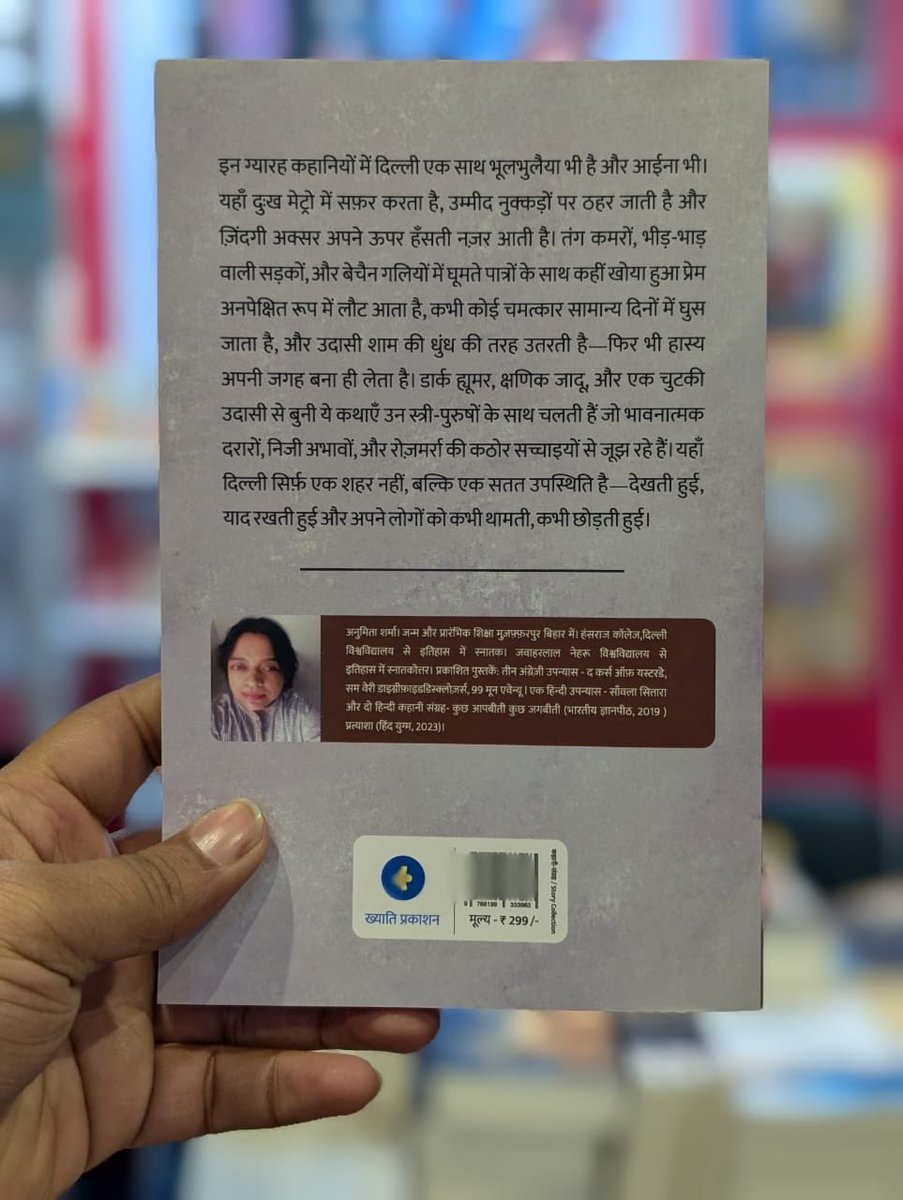 इन ग्यारह कहानियों में दिल्ली एक साथ भूलभुलैया भी है और आईना भी।
यहाँ दुःख मेट्रो में सफ़र करता है, उम्मीद नुक्कड़ों पर ठहर जाती है और
ज़िंदगी अक्सर अपने ऊपर हँसती नज़र आती है। तंग कमरों, भीड़-भाड़
वाली सड़कों, और बेचैन गलियों में घूमते पात्रों के साथ कहीं खोया हुआ प्रेम
अनपेक्षित रूप में लौट आता है, कभी कोई चमत्कार सामान्य दिनों में घुस
जाता है, और उदासी शाम की धुंध की तरह उतरती है—फिर भी हास्य
अपनी जगह बना ही लेता है। डार्क ह्यूमर, क्षणिक जादू, और एक चुटकी
उदासी से बुनी ये कथाएँ उन स्त्री-पुरुषों के साथ चलती हैं जो भावनात्मक
दरारों, निजी अभावों, और रोज़मर्रा की कठोर सच्चाइयों से जूझ रहे हैं। यहाँ
दिल्ली सिर्फ़ एक शहर नहीं, बल्कि एक सतत उपस्थिति है—देखती हुई,
याद रखती हुई और अपने लोगों को कभी थामती, कभी छोड़ती हुई।
अनुमिता शर्मा। जन्म और प्रारंभिक शिक्षा मुज़फ़्फ़रपुर बिहार में। हंसराज कॉलेज,दिल्ली
विश्वविद्यालय से इतिहास में स्नातक। जवाहरलाल नेहरू विश्वविद्यालय से
इतिहास में स्नातकोत्तर। प्रकाशित पुस्तकें: तीन अंग्रेज़ी उपन्यास - द कर्स ऑफ़ यस्टरडे,
सम वेरी डाइग्रीफ़ाइडडिस्क्लोज़र्स, 99 मून एवेन्यू। एक हिन्दी उपन्यास - साँवला सितारा
और दो हिन्दी कहानी संग्रह- कुछ आपबीती कुछ जगबीती (भारतीय ज्ञानपीठ, 2019 )
प्रत्याशा (हिंद युग्म, 2023)।
ख्याति प्रकाशन
9 788199 333963
मूल्य - ₹ 299 /-
कहानी-संग्रह / Story Collection